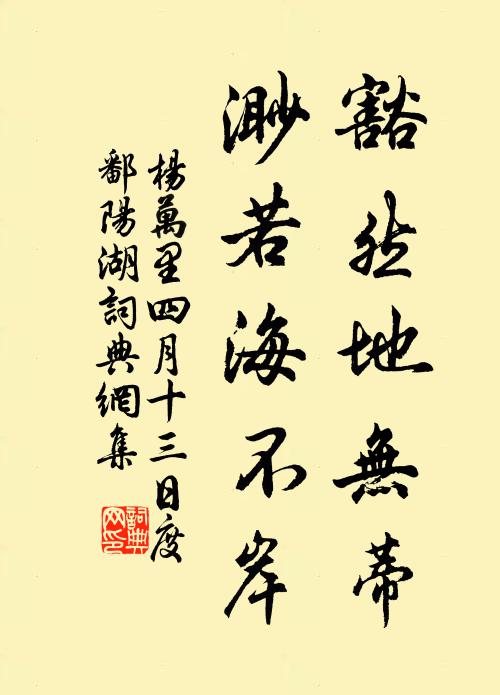 豁然地無蒂
渺若海不岸
楊萬里四月十三日度
鄱陽湖詞典網集
詞典
网印